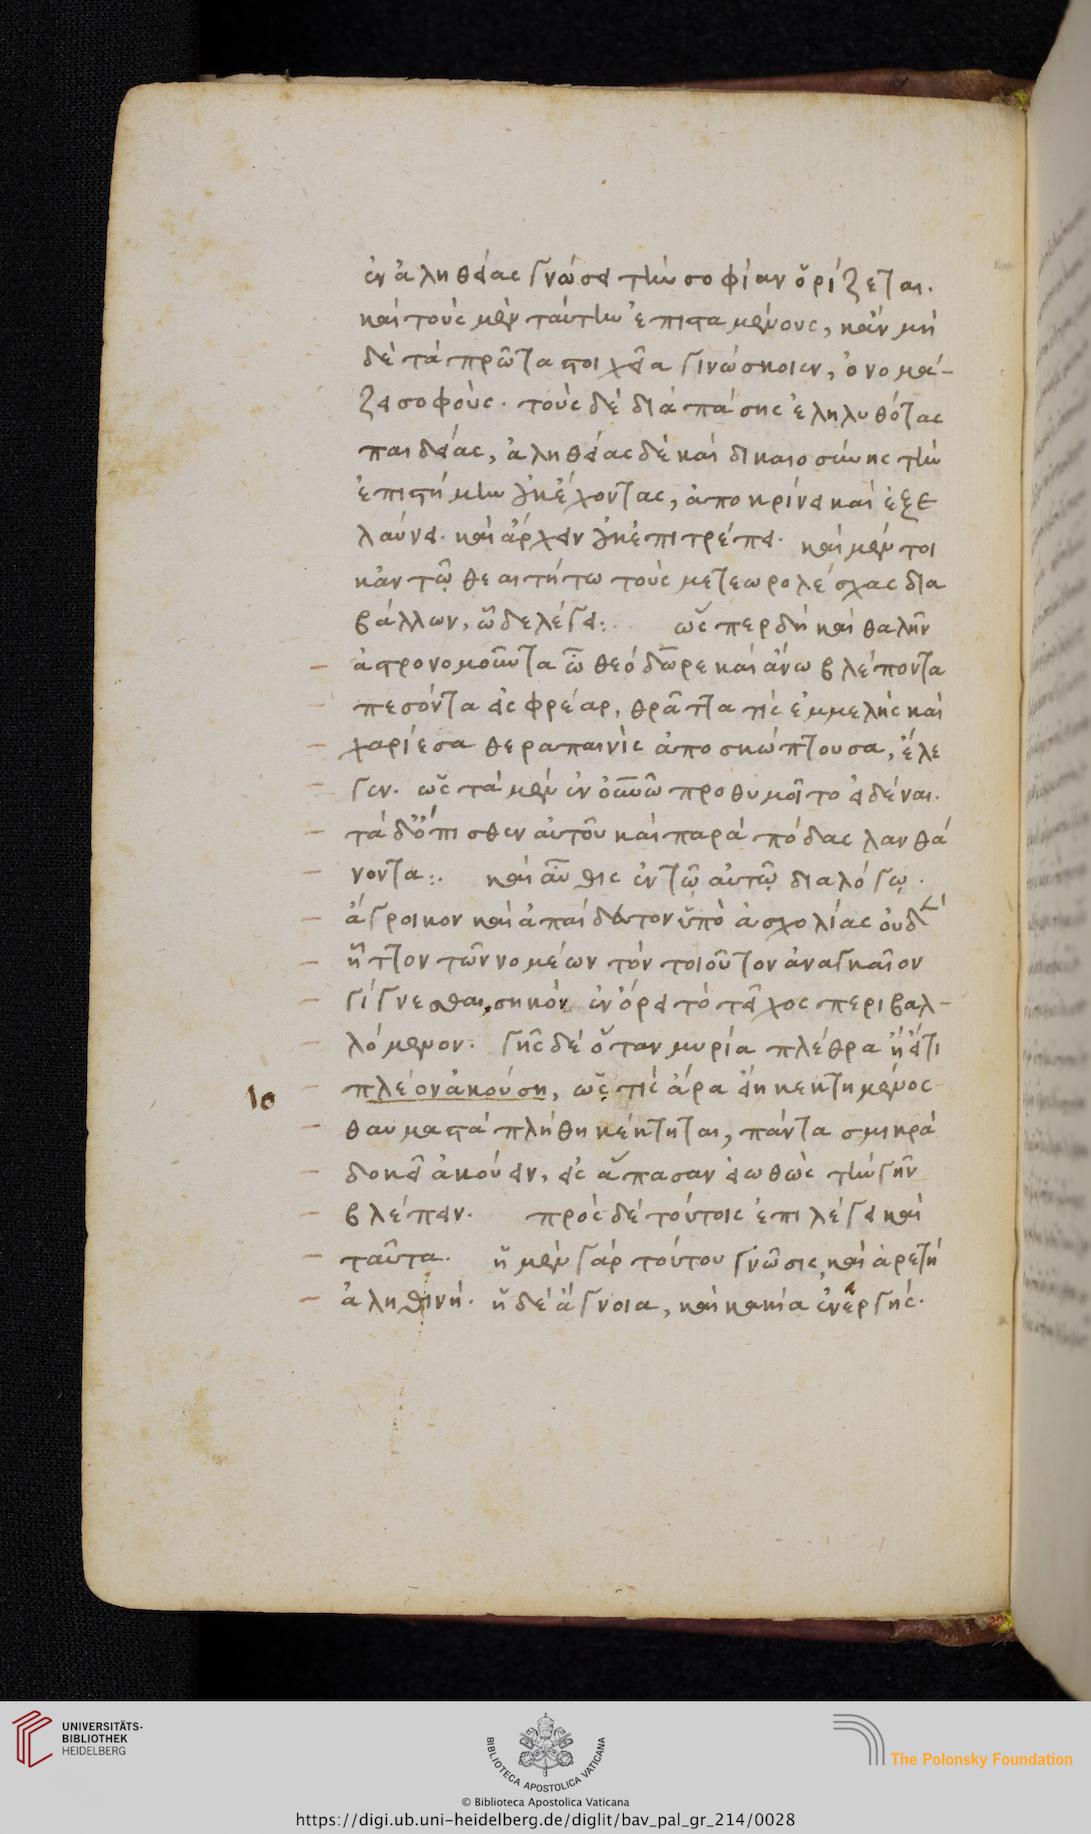 ἐν ἀληθείας γνώσει τὴν σοφίαν ὁρίζεται.
καὶ τοὺς μὲν ταύτην ἐπισταμένους, κἂν μὴ
δὲ τὰ πρῶτα στοιχεῖα γινώσκοιεν, ὀνομά-
ζει σοφούς. τοὺς δὲ διὰ πάσης ἐληλυθότας
παιδείας, ἀληθείας δὲ καὶ δικαιοσύνης τὴν
ἐπιστήμην οὐκ ἔχοντας, ἀποκρίνει καὶ ἐξε
λαύνει. καὶ ἄρχειν οὐκ ἐπιτρέπει. καὶ μέντοι
κἀν τῷ θεαιτήτω τοὺς μετεωρολέσχας δια
βάλλων, ὧδε λέγει: ὥσπερ δὴ καὶ θαλῆν
ἀστρονομοῦντα ὦ θεόδωρε καὶ ἄνω βλέποντα
πεσόντα εἰς φρέαρ, θρᾶττά τις ἐμμελὴς καὶ
χαρίεσα θεραπαινὶς ἀποσκώπτουσα, ἔλε
γεν. ὡς τὰ μὲν ἐν οὐνῶ προθυμοῖτο εἰδέναι.
τὰ δ' ὄπισθεν αὐτοῦ καὶ παρὰ πόδας λανθά
νοντα:. καὶ αὖθις ἐν τῷ αὐτῷ διαλόγῳ.
ἄγροικον καὶ ἀπαίδευτον ὑπὸ ἀσχολίας οὐδὲν
ἧττον τῶν νομέων τὸν τοιοῦτον ἀναγκαῖον
γίγνεσθαι, σηκὸν ἐν ὄρει τὸ τεῖχος περιβαλ-
λόμενον. γῆς δὲ ὅταν μυρία πλέθρα ἢ ἔτι
10 πλέον ἀκούση, ὥς τις ἄρα εἴη κεκτημένος
θαυμαστὰ πλήθη κέκτηται, πάντα σμικρὰ
δοκεῖ ἀκούειν, εἰς ἅπασαν εἰωθὼς τὴν γῆν
βλέπειν. πρὸς δὲ τούτοις ἐπιλέγει καὶ
ταῦτα. ἡ μὲν γὰρ τούτου γνῶσις, καὶ ἀρετὴ
ἀληθινή. ἡ δὲ ἄγνοια, καὶ κακία ἐνεργής.
UNIVERSITÄTS-
BIBLIOTHEK
HEIDELBERG
BIBLIOTECA APOSTOLICA VATICANA
The Polonsky Foundation
© Biblioteca Apostolica Vaticana
https://digi.ub.uni-heidelberg.de/diglit/bav_pal_gr_214/0028